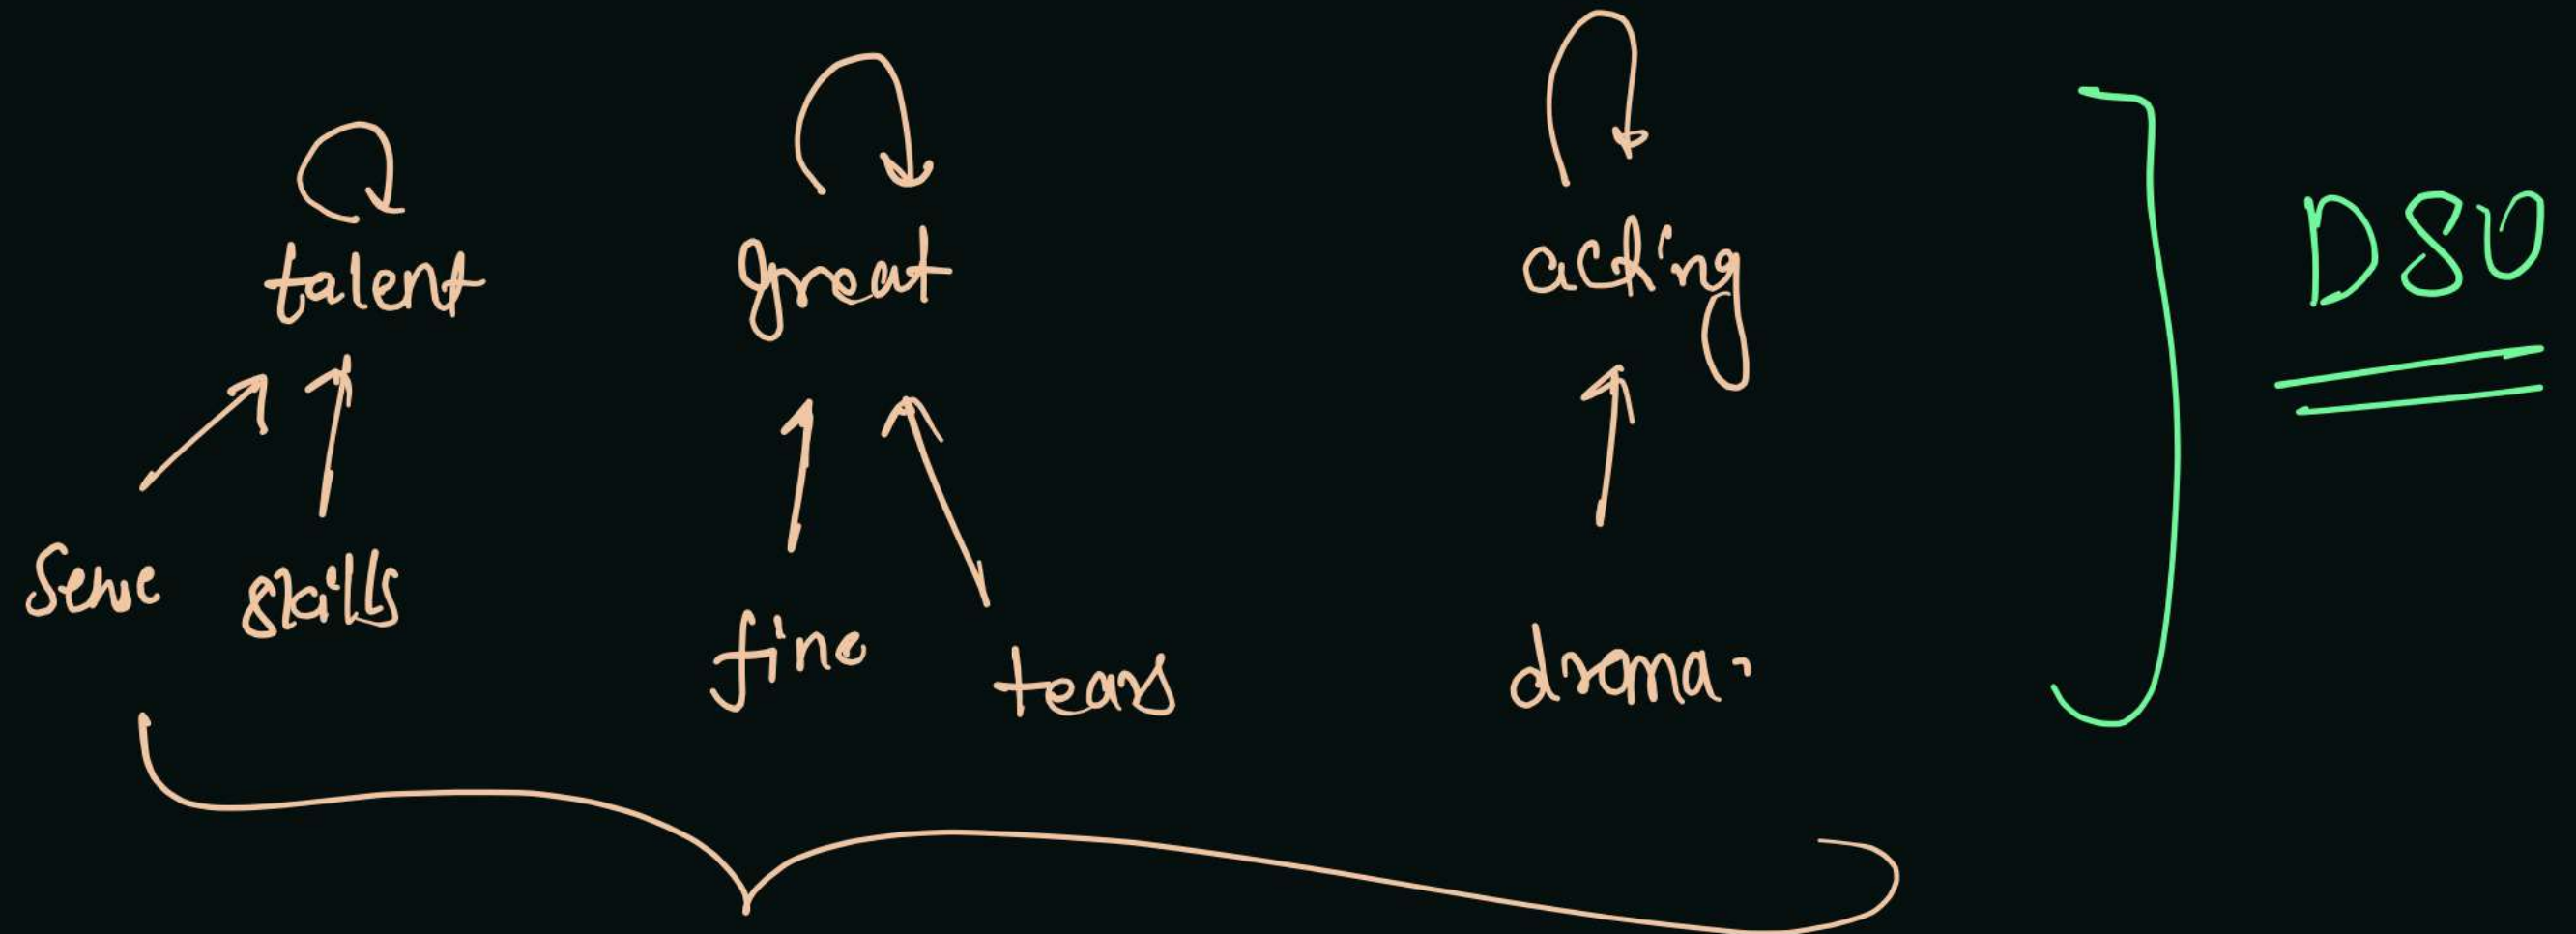 talent great acting
DSU
skills
fine tears drama